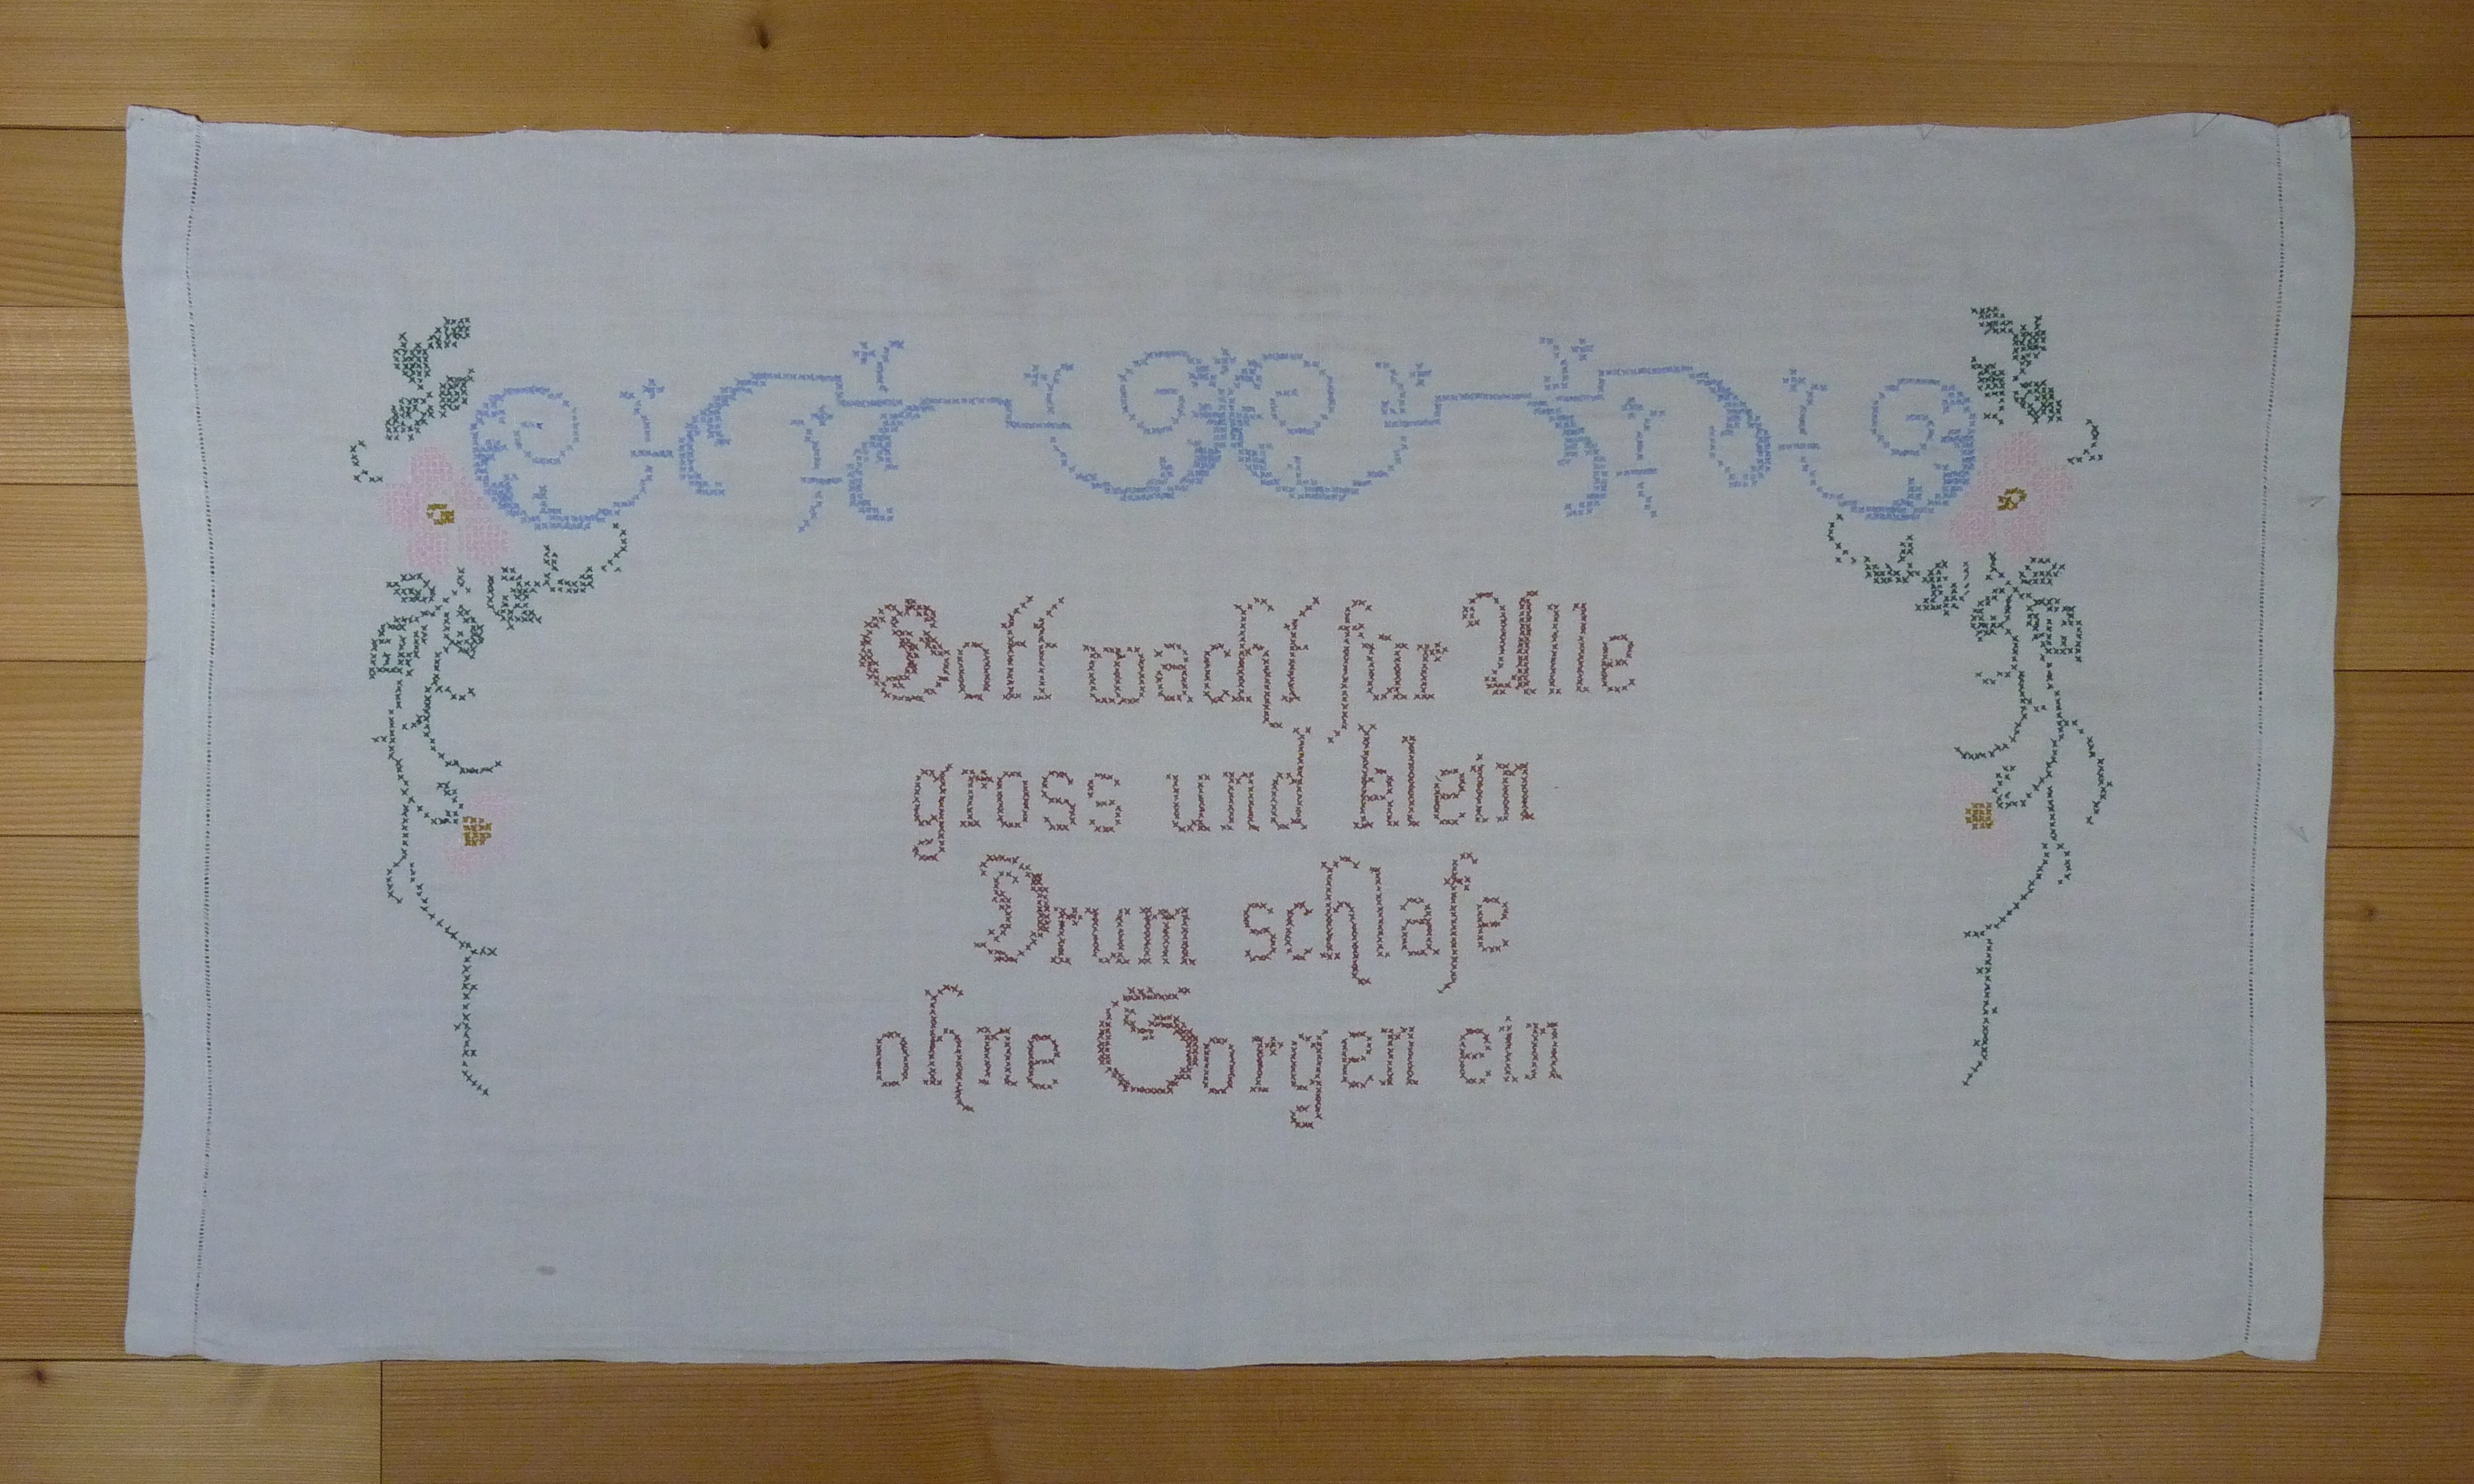 Gott wacht fur Alle
gross und klein
Drum schlafe
ohne Sorgen ein